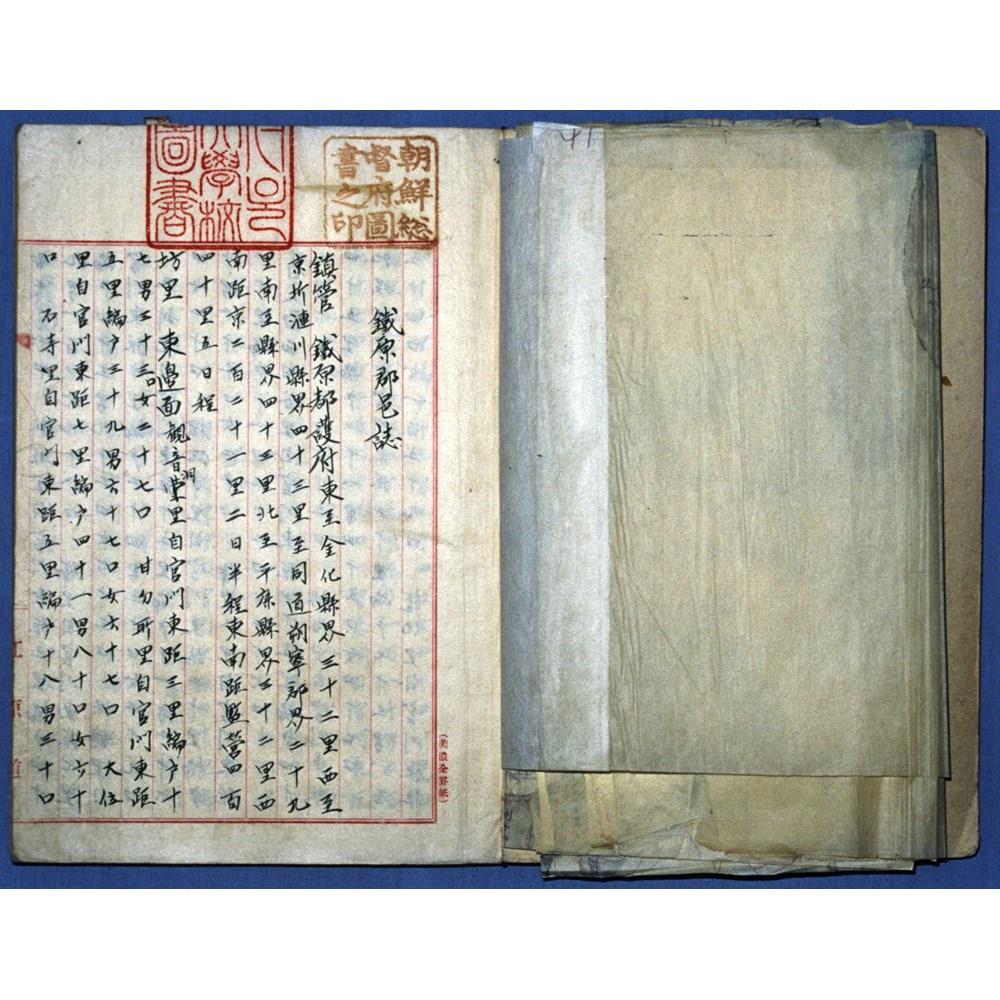 朝鮮総
督府圖
書之印
大學校
圖書
鐵原郡邑誌
鎮管 鐵原都護府東至金化縣界三十二里西至
京圻漣川縣界四十三里至同道朔寧郡界二十九
里南至縣界四十三里北至平康縣界二十二里西
南距京二百二十一里二日半程東南距監營四百
四十里五日程
坊里 東邊面觀音洞里自官門東距三里編户十
七男三十三口女二十七口 甘勿耶里自官門東距
五里編户三十九男六十七口女六十七口 大位
里自官門東距七里編户四十一男八十口女六十
口 石寺里自官門東距五里編户十八男三十口
(美濃全罫紙)
江原道
41